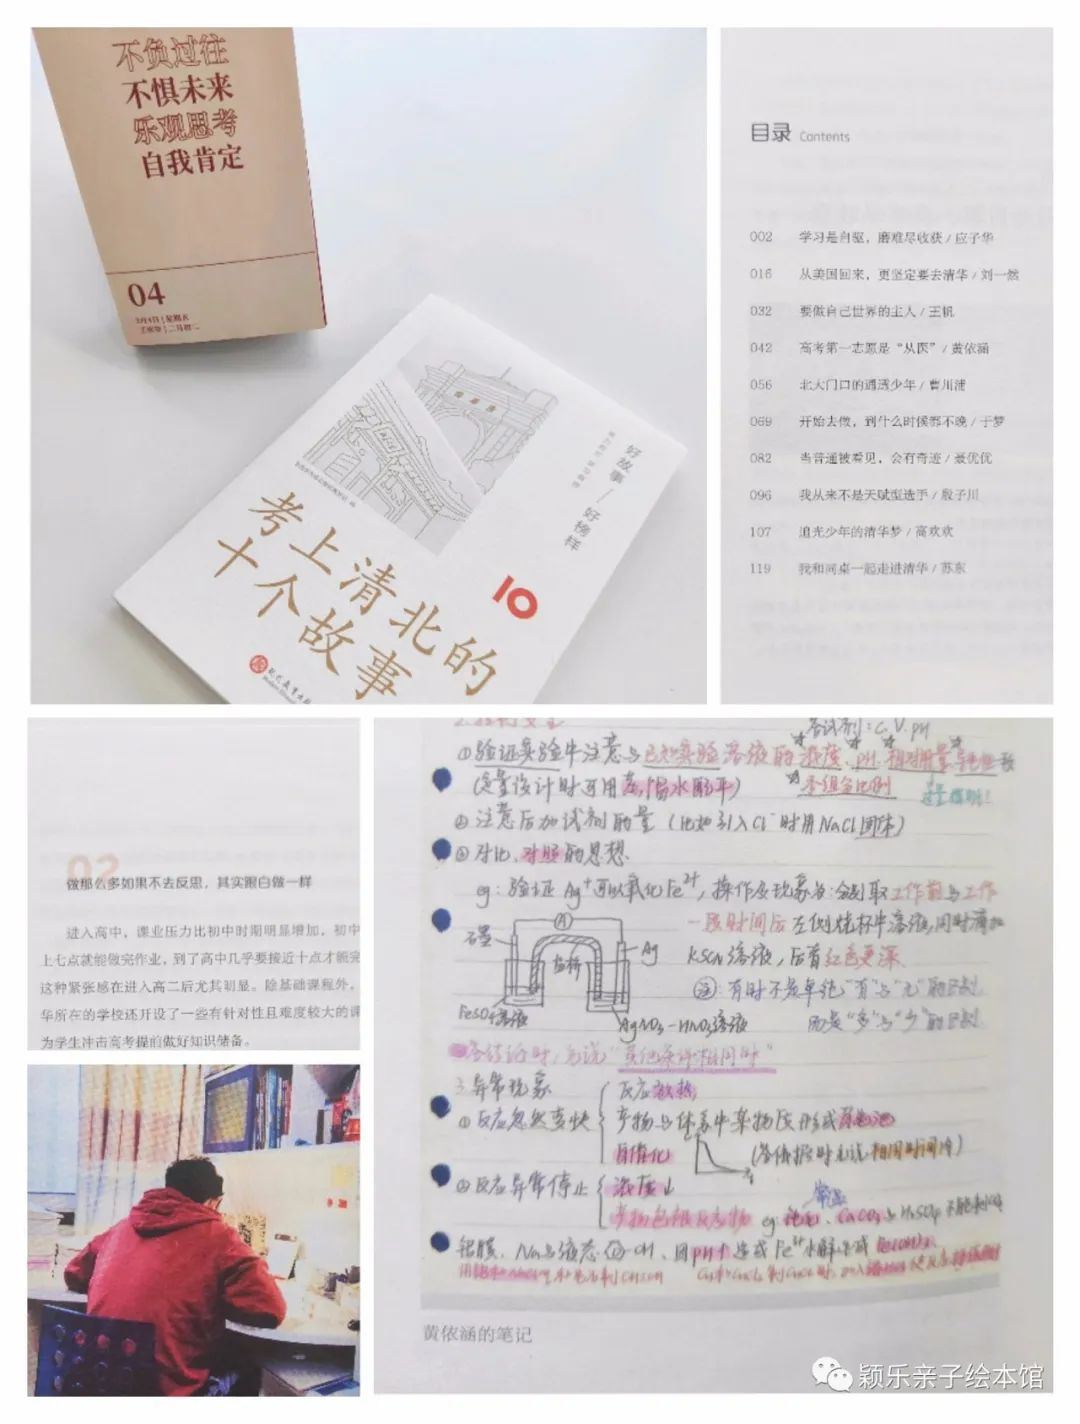 不负过往
不惧未来
乐观思考
自我肯定
04
好故事/好榜样
考上清北的
十个故事
10
目录 Contents
002 学习是自驱，磨难尽收获 / 应子华
016 从美国回来，更坚定要去清华 / 刘一然
032 要做自己世界的主人 / 王帆
042 高考第一志愿是“从医” / 黄依涵
056 北大门口的通透少年 / 曹川浦
069 开始去做，到什么时候都不晚 / 于梦
082 当普通被看见，会有奇迹 / 聂优优
096 我从来不是天赋型选手 / 殷子川
107 追光少年的清华梦 / 高欢欢
119 我和同桌一起走进清华 / 苏东
02
做那么多如果不去反思，其实跟白做一样
进入高中，课业压力比初中时期明显增加，初中
上七点就能做完作业，到了高中几乎要接近十点才能完
这种紧张感在进入高二后尤其明显。除基础课程外，
华所在的学校还开设了一些有针对性且难度较大的课
为学生冲击高考提前做好知识储备。
看试剂：C.V.pH
①验证实验中注意与已知实验溶液的浓度、pH、相对用量
(定量设计时可用蒸馏水配平)
②注意后加试剂的量（比如引入Cl⁻时用NaCl固体）
③对比、对照的思想.
eg：验证Ag⁺可以氧化Fe²⁺，操作及现象为：分别取工作前与工作
一段时间后左侧烧杯中溶液，同时滴加
KSCN溶液，后者红色更深
石墨
A
盐桥
Ag
FeSO₄溶液
AgNO₃-HNO₃溶液
注：有时不是单纯“有”与“无”的区别
而是“多”与“少”的区别
答结论时，先说“其他条件相同时”
3.异常现象
反应放热
①反应忽然变快
产物与体系中某物质形成原电池
自催化
②反应异常停止
浓度小
产物包裹反应物
黄依涵的笔记
颖乐亲子绘本馆